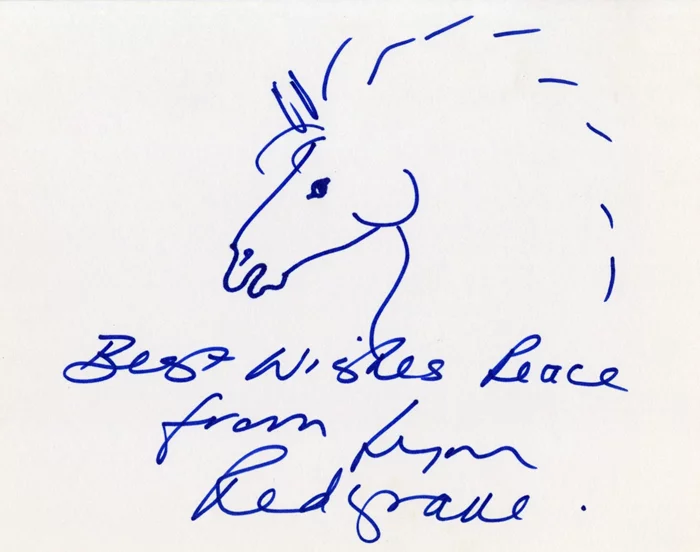 Best Wishes Peace
from Lynn
Redgrave.